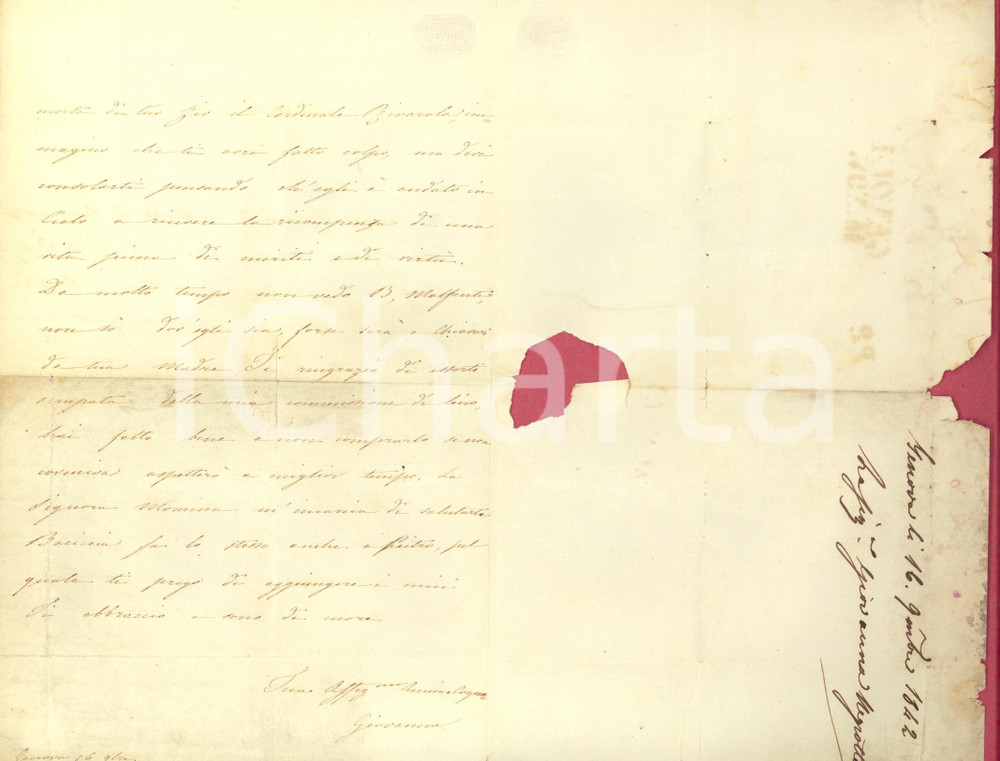 morte di tuo Zio il Cardinale Rivarola, im=
magino che ti avrà fatto colpo, ma devi
consolarti pensando ch'egli è andato in
Cielo a ricevere la ricompenza di una
vita piena di meriti e di virtù.
Da molto tempo non vedo B. Malfanti,
non sò dov'egli sia, forse sarà a Chiavari
da tua Madre. Ti ringrazio di esserti
occupata della mia commissione di lino,
hai fatto bene a non comprarlo se non
conveniva aspetterò a miglior tempo. La
Signora Momina m'incarica di salutarti
fa lo stesso anche a Pietro, pel
quale ti prego di aggiungere i miei
Ti abbraccio e sono di cuore
Tua Affez.ma
Giovanna
Genova 16
Genova li 16. 9mbre 1842
Giovanna
iCharta